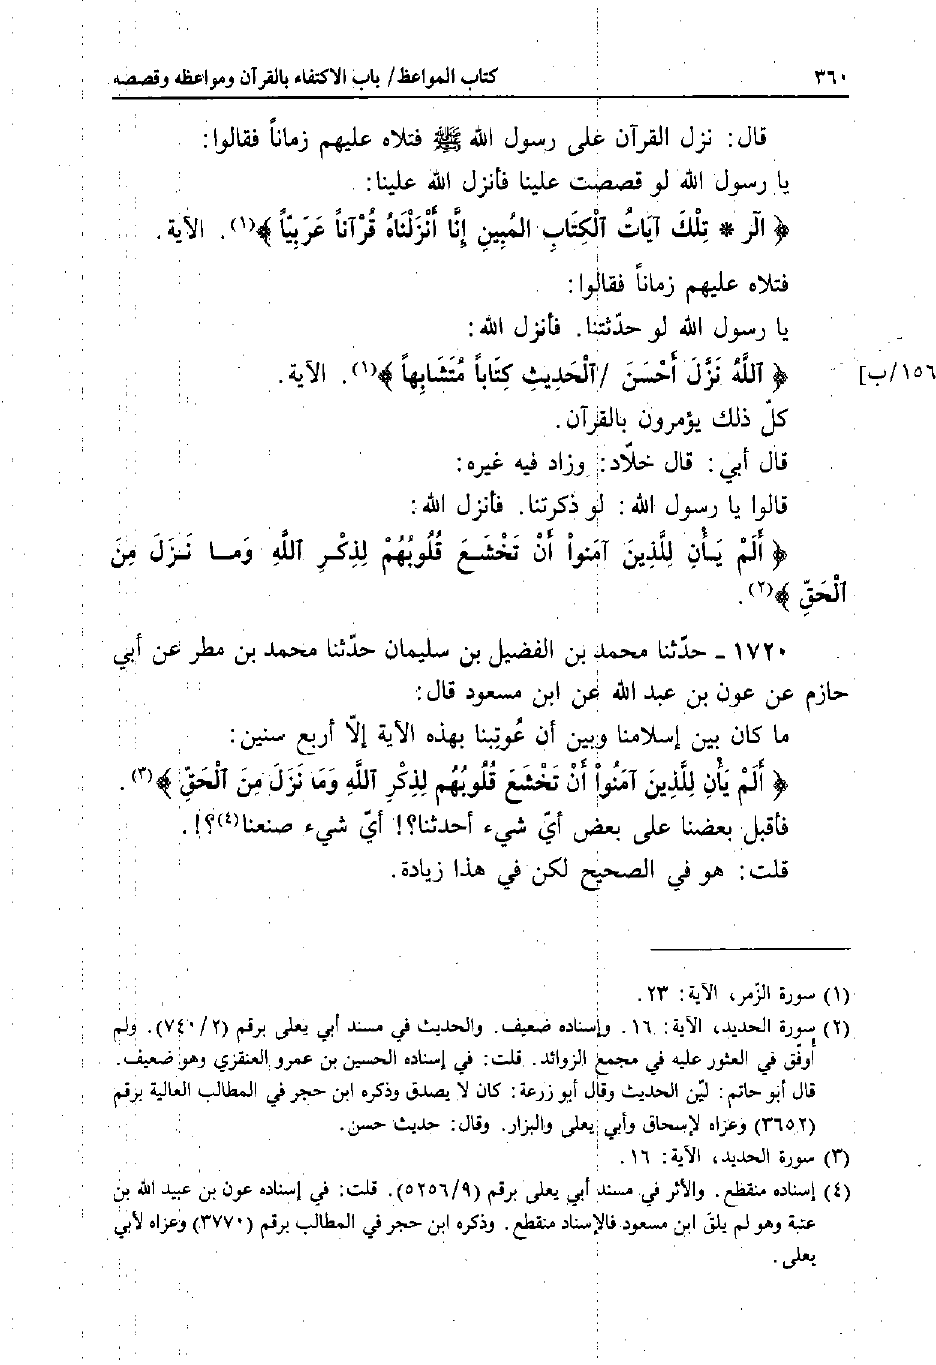 ٣٦٠
كتاب المواعظ/ باب الاكتفاء بالقرآن ومواعظه وقصصه
قال: نزل القرآن على رسول الله ﷺ فتلاه عليهم زماناً فقالوا:
يا رسول الله لو قصصت علينا فأنزل الله علينا:
﴿ الٓر * تِلْكَ آيَاتُ ٱلْكِتَابِ المُبِينِ إِنَّا أَنْزَلْنَاهُ قُرْآناً عَرَبِيّاً ﴾(١). الآية.
فتلاه عليهم زماناً فقالوا:
يا رسول الله لو حدّثتنا. فأنزل الله:
﴿ ٱللَّهُ نَزَّلَ أَحْسَنَ /ٱلْحَدِيثِ كِتَاباً مُتَشَابِهاً ﴾(١). الآية.
١٥٦/ب]
كلّ ذلك يؤمرون بالقرآن.
قال أبي: قال خلّاد: وزاد فيه غيره:
قالوا يا رسول الله: لو ذكرتنا. فأنزل الله:
﴿ أَلَمْ يَـأْنِ لِلَّذِينَ آمَنواْ أَنْ تَخْشَـعَ قُلُوبُهُمْ لِذِكْـرِ ٱللَّهِ وَمـا نَـزَلَ مِنَ
ٱلْحَقِّ ﴾(٢).
١٧٢٠ - حدّثنا محمد بن الفضيل بن سليمان حدّثنا محمد بن مطر عن أبي
حازم عن عون بن عبد الله عن ابن مسعود قال:
ما كان بين إسلامنا وبين أن عُوتِبنا بهذه الآية إلّا أربع سنين:
﴿ أَلَمْ يَأْنِ لِلَّذِينَ آمَنُواْ أَنْ تَخْشَعَ قُلُوبُهُم لِذِكْرِ ٱللَّهِ وَمَا نَزَلَ مِنَ ٱلْحَقِّ ﴾(٣).
فأقبل بعضنا على بعض أيّ شيء أحدثنا؟! أيّ شيء صنعنا(٤)؟!.
قلت: هو في الصحيح لكن في هذا زيادة.
(١) سورة الزّمر، الآية: ٢٣.
(٢) سورة الحديد، الآية: ١٦. وإسناده ضعيف. والحديث في مسند أبي يعلى برقم (٧٤٠/٢). ولم
أوفّق في العثور عليه في مجمع الزوائد. قلت: في إسناده الحسين بن عمرو العنقزي وهو ضعيف.
قال أبو حاتم: ليّن الحديث وقال أبو زرعة: كان لا يصدق وذكره ابن حجر في المطالب العالية برقم
(٣٦٥٢) وعزاه لإسحاق وأبي يعلى والبزار. وقال: حديث حسن.
(٣) سورة الحديد، الآية: ١٦.
(٤) إسناده منقطع. والأثر في مسند أبي يعلى برقم (٥٢٥٦/٩). قلت: في إسناده عون بن عبيد الله بن
عتبة وهو لم يلقَ ابن مسعود فالإسناد منقطع. وذكره ابن حجر في المطالب برقم (٣٧٧٠) وعزاه لأبي
يعلى.